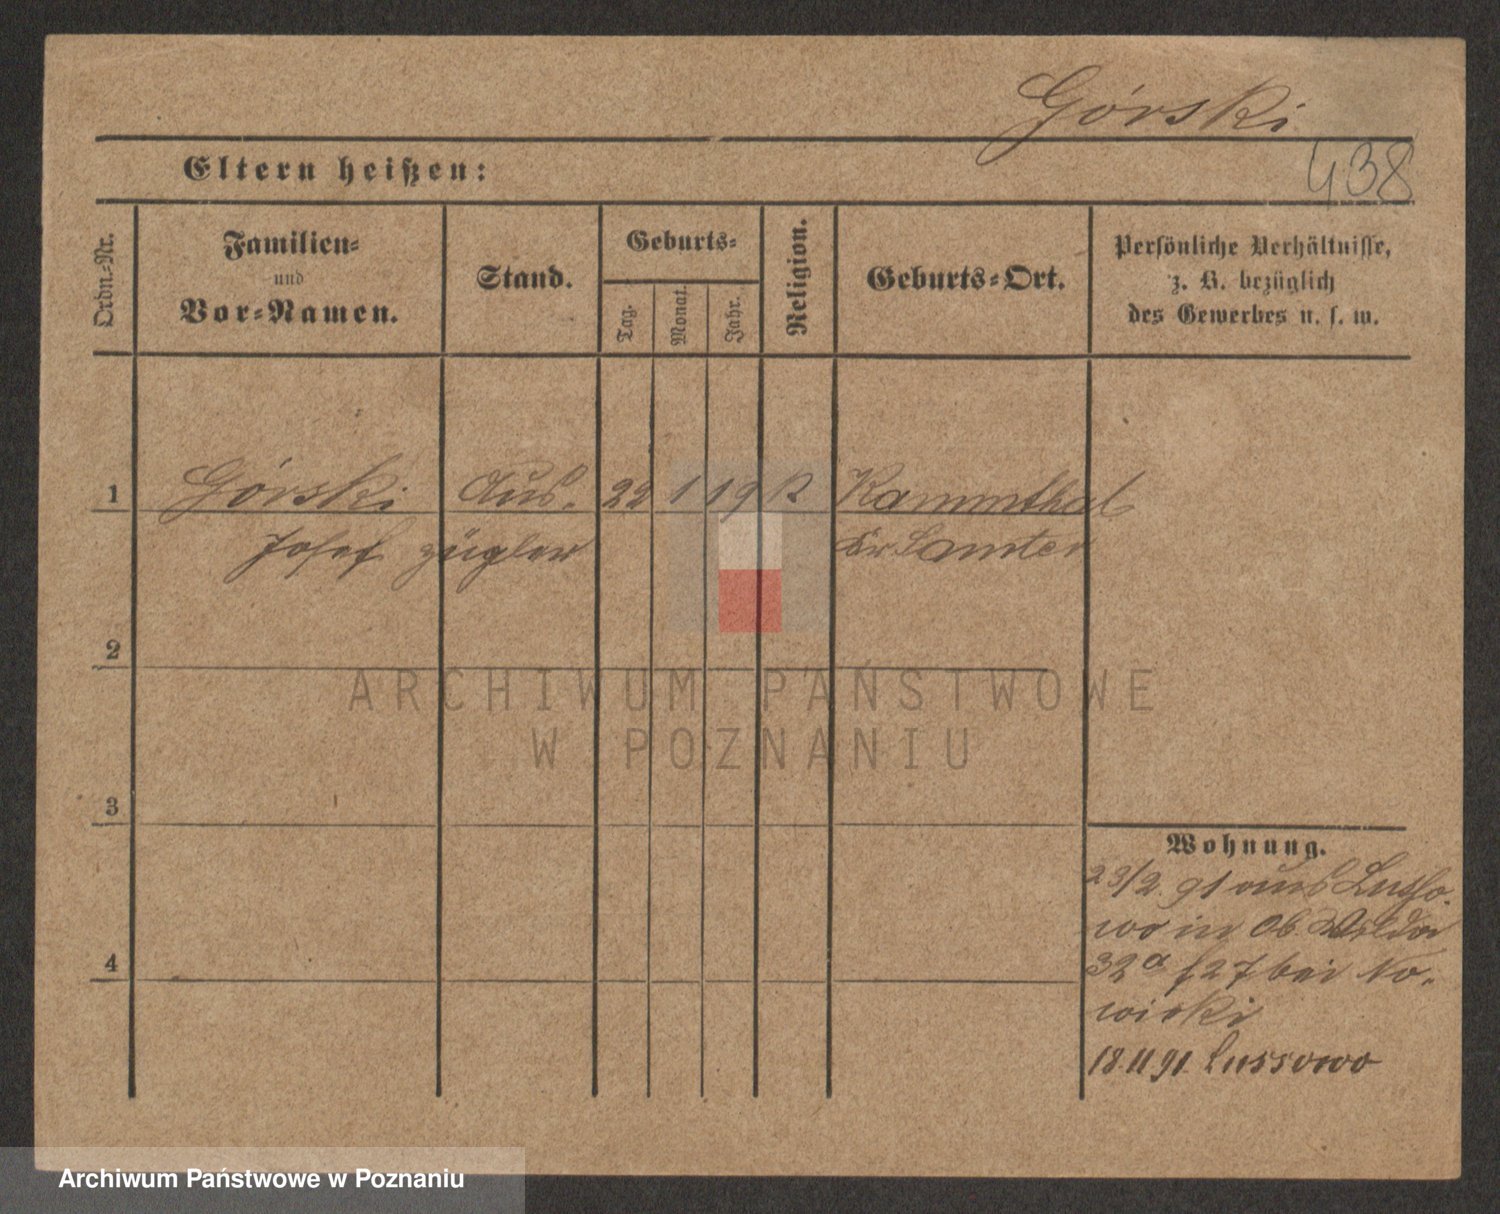 Górski
438
Eltern heißen:
Ordn.-Nr.
Familien-
und
Vor-Namen.
Stand.
Geburts-
Tag.
Monat.
Jahr.
Religion.
Geburts-Ort.
Persönliche Verhältnisse,
z. B. bezüglich
des Gewerbes u. s. w.
1 Górski Aus- 22 1 19 K Kammthal
Josef zügler Kr Samter
2
ARCHIWUM PAŃSTWOWE
W POZNANIU
3
Wohnung.
23/2 91 aus Lusso-
wo in Ob Wilda
4
32a bei No-
wicki
18.11 91. Lussowo
Archiwum Państwowe w Poznaniu